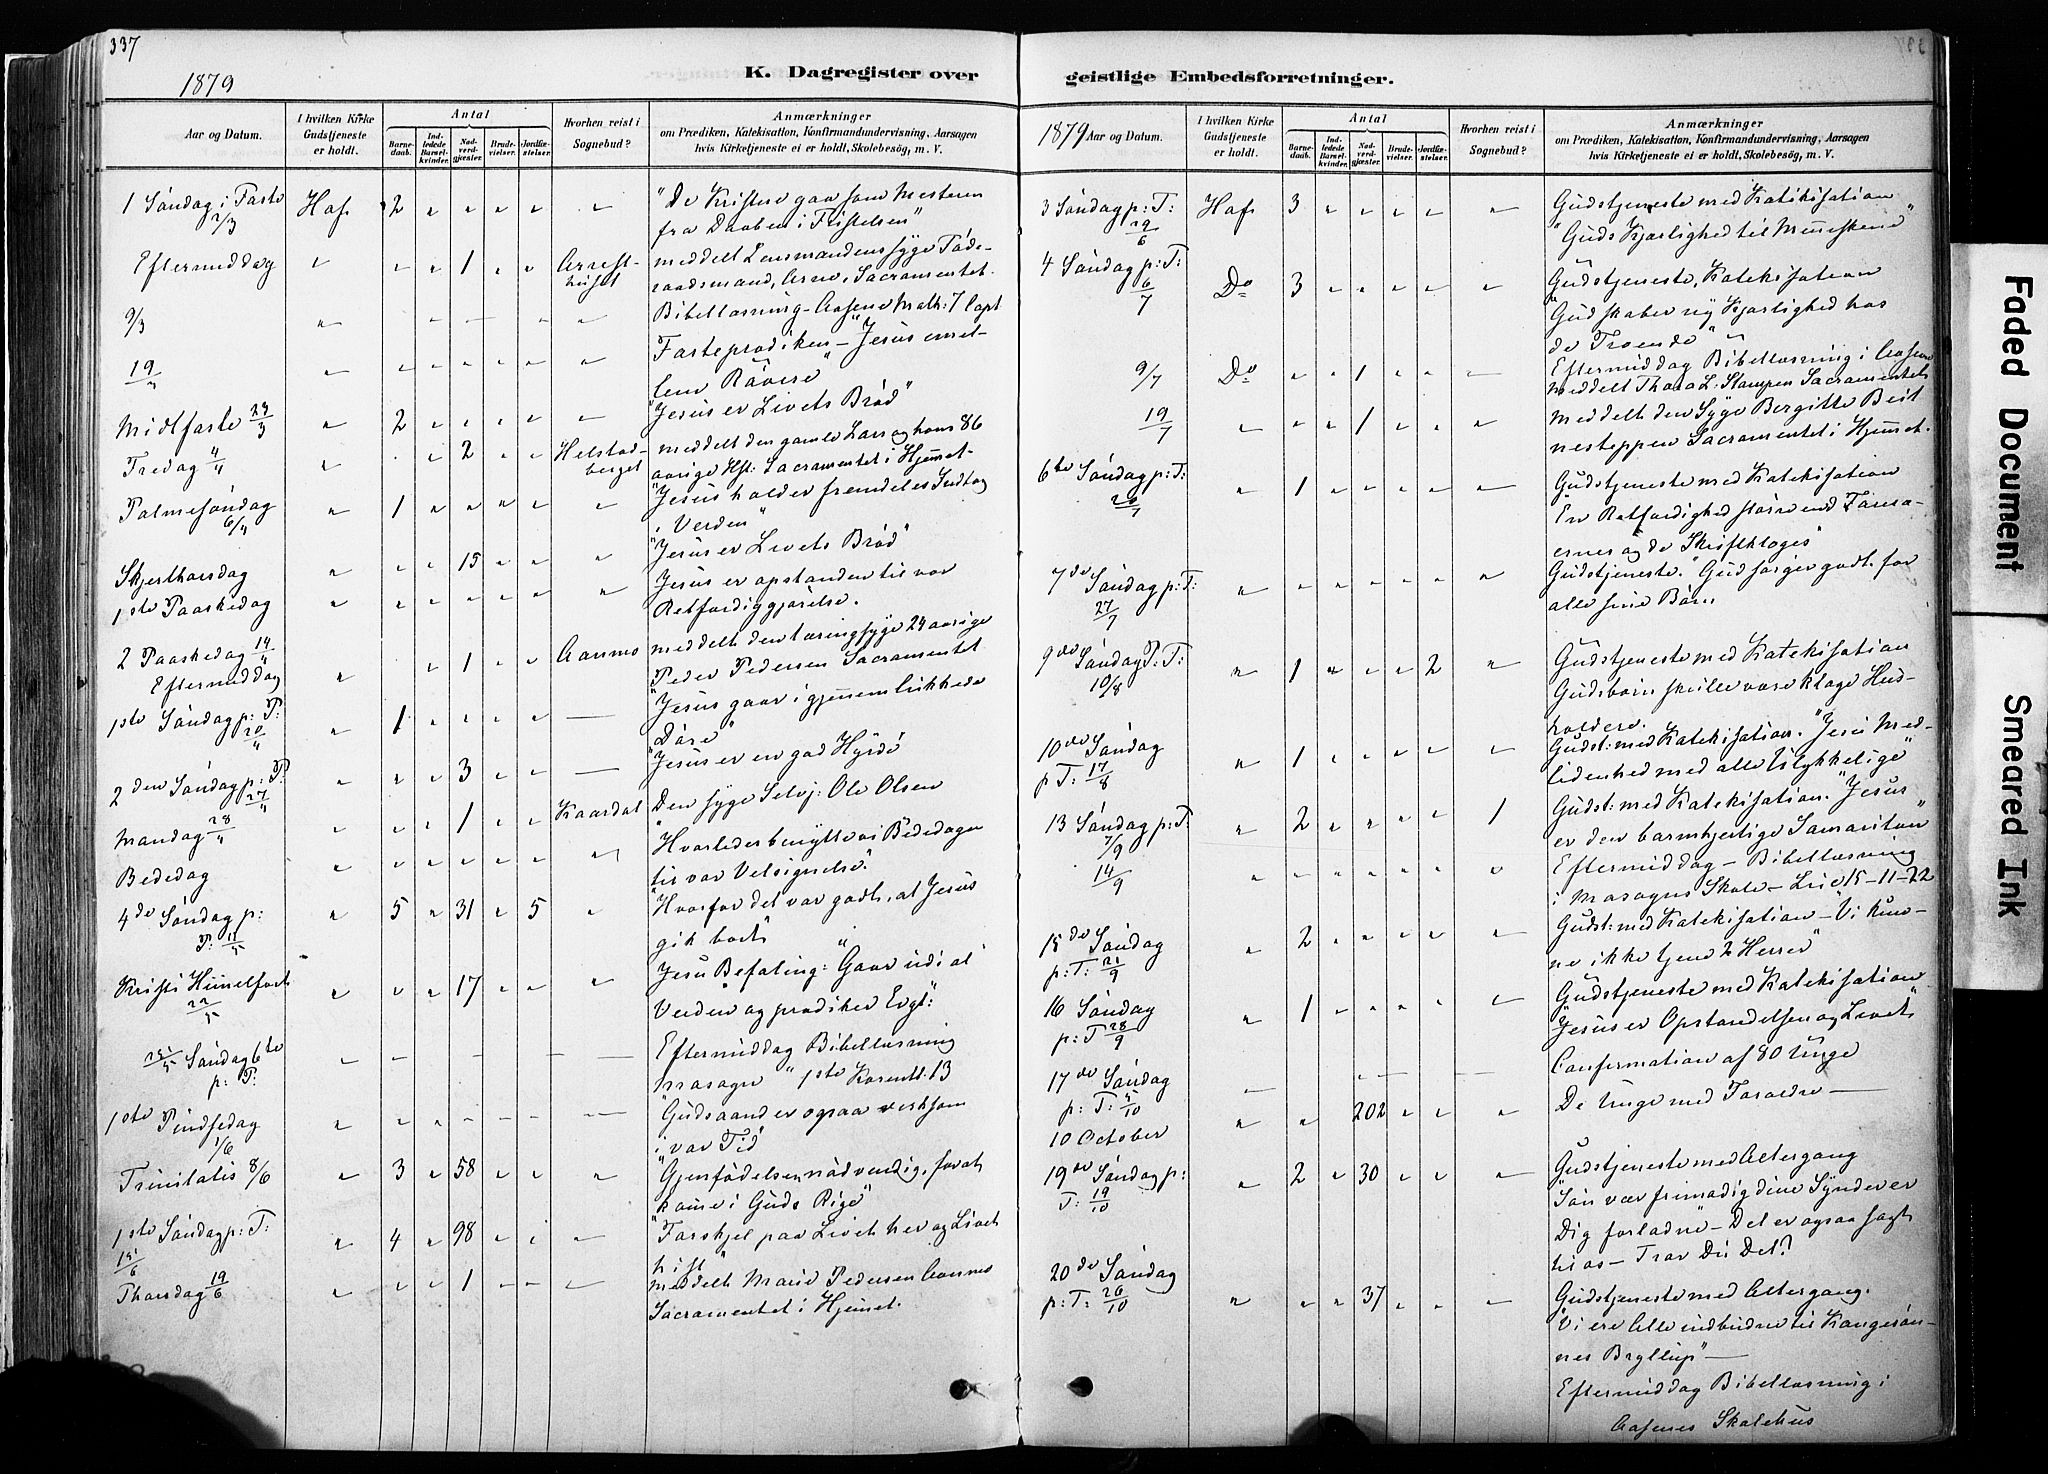 337
1879
K. Dagregister over
Aar og Datum.
I hvilken Kirke Gudstjeneste er holdt.
Antal
Barnedaab.
Indledede Barselkvinder.
Nadverdgjæster.
Brudevielser.
Jordfæstelser.
Hvorhen reist i Sognebud?
Anmærkninger
om Prædiken, Katekisation, Konfirmandundervisning, Aarsagen
hvis Kirketjeneste ei er holdt, Skolebesøg, m. V.
1 Søndag i Faste Hof 2 " " " " " "De Kristne gaa som Mesteren
2/3 fra Daaben i Fristelsen"
Eftermiddag " " " 1 " " Arrest- meddelt Lensmandens syge
huset Sacramentet.
9/3 " Bibellæsning - Aasene Math: 7 Capt
19/" " Fasteprædiken - "Jesus
Røvere"
Midtfaste 23/3 " 2 " " " " "Jesus er Livets Brød"
Fredag 4/4 " " " 2 " " Helstad- meddelt den gamle Lars og hans 86
berget aarige Hst: Sacramentet i Hjemmet.
Palmesøndag " 1 " " " " " "Jesus holder fremdeles Indtog
6/4 i Verden"
Skjerthorsdag " " " 15 " " " "Jesus er Livets Brød"
1ste Paaskedag " " " " " " " Jesus er opstanden til vor
Retfærdiggjørelse.
2 Paaskedag 14/4 " " " 1 " " Aarmo meddelt den tæringsyge 24 aarige
Eftermiddag Peder Pedersen Sacramentet
1ste Søndag p: P: " 1 " " " " — "Jesus gaar igjennem lukkede
20/4 Døre"
2den Søndag p: P: " " " 3 " " — "Jesus er en god Hyrde"
27/4
Mandag 28/4 " " " 1 " " Kaasdal Den syge Selvj: Ole Olsen
Bededag " " " " " " " "Hvorledes benytte vi Bededagen
til vor Velsignelse."
4de Søndag p: " 5 " 31 " 5 " "Hvorfor det var godt, at Jesus
P: 11/5 gik bort"
Kristi Himelfart " " " 17 " " " Jesu Befaling: "Gaar ud i al
22/5 Verden og prædiker Evgl":
25/5 Søndag 6te — — — — — — — Eftermiddag Bibellæsning
p: P: Masagn "1ste Korenth. 13
1ste Pindsedag " " " " " " — "Guds aand er ogsaa virksom
1/6 i vor Tid"
Trinitatis 8/6 " 3 " 58 " " " "Gjenfødelsen nødvendig, for at
komme i Guds Rige"
1ste Søndag p: T: " 4 " 98 " " " "Forskjel paa Livet her og Livet
15/6 hist"
Thorsdag 19/6 " " " 1 — — " meddelt Marie Pedersen Aarmo
Sacramentet i Hjemmet.
geistlige Embedsforretninger.
1879 Aar og Datum.
I hvilken Kirke Gudstjeneste er holdt.
Antal
Barnedaab.
Indledede Barselkvinder.
Nadverdgjæster.
Brudevielser.
Jordfæstelser.
Hvorhen reist i Sognebud?
Anmærkninger
om Prædiken, Katekisation, Konfirmandundervisning, Aarsagen
hvis Kirketjeneste ei er holdt, Skolebesøg, m. V.
3 Søndag p: T: Hof 3 " " " " " Gudstjeneste med Katekisation
29/6 "Guds Kjærlighed til Menneskene"
4 Søndag p: T: Do 3 " " " " " Gudstjeneste, Katekisation
6/7 "Gud skaber ny Kjærlighed hos
de Troende"
9/7 Do " " 1 " " — Eftermiddag Bibellæsning i Aasene
meddelt Thora L. Stampen Sacramentet
19/7 " " " 1 " " " meddelt den Syge Bergitte
Sacramentet i Hjemmet.
6te Søndag p: T: " 1 " " " " " Gudstjeneste med Katekisation
20/7 "En Retfærdighed større end Farisæ-
ernes og de Skriftkloges"
7de Søndag p: T: " " " " " " " Gudstjeneste. "Gud sørger godt for
27/7 alle sine Børn.
9de Søndag P: T: " 1 " " " 2 " Gudstjeneste med Katekisation
10/8 Gudsbørn skulle være kloge Hus-
holdere.
10de Søndag " 1 " " " " " Gudst: med Katekisation. "Jesu Med-
p T: 17/8 lidenhed med alle Ulykkelige"
13 Søndag p: T: " 2 " " " " 1 Gudst: med Katekisation. "Jesus
7/9 er den barmhjertige Samaritan"
14/9 " " " " " " " Eftermiddag - Bibellæsning
i Masagns Skole - Luc 15-11-22
15de Søndag " 2 " " " " " Gudst: med Katekisation - Vi kun-
p: T: 21/9 ne ikke tjene 2 Herrer"
16 Søndag " 1 " " " " " Gudstjeneste med Katekisation
p: T 28/9 "Jesus er Opstandelsen og Livet"
17de Søndag — Confirmation af 80 Unge
p: T: 5/10 " " 202 " " " De Unge med Forældre —
10 October
19de Søndag p: " 2 " 30 " " " Gudstjeneste med Altergang
T: 19/10 "Søn vær frimodig dine Synder er
Dig forladne - Det er ogsaa sagt
til os - Tror Du Det?
20de Søndag
p: T: 26/10 " " " 37 " " " Gudstjeneste med Altergang.
"Vi ere Alle indbudne til Kongesøn-
nes Bryllup" —
Eftermiddag Bibellæsning i
Aasenes Skolehus
Faded Document
Smeared Ink